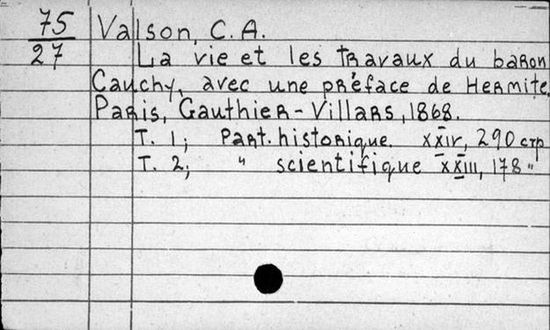 75 Valson, C. A.
27 La vie et les travaux du baron
Cauchy, avec une préface de Hermite,
Paris, Gauthier-Villars, 1868.
T. 1; Part. historique. XXIV, 290 стр
T. 2; " scientifique XXIII, 178 "